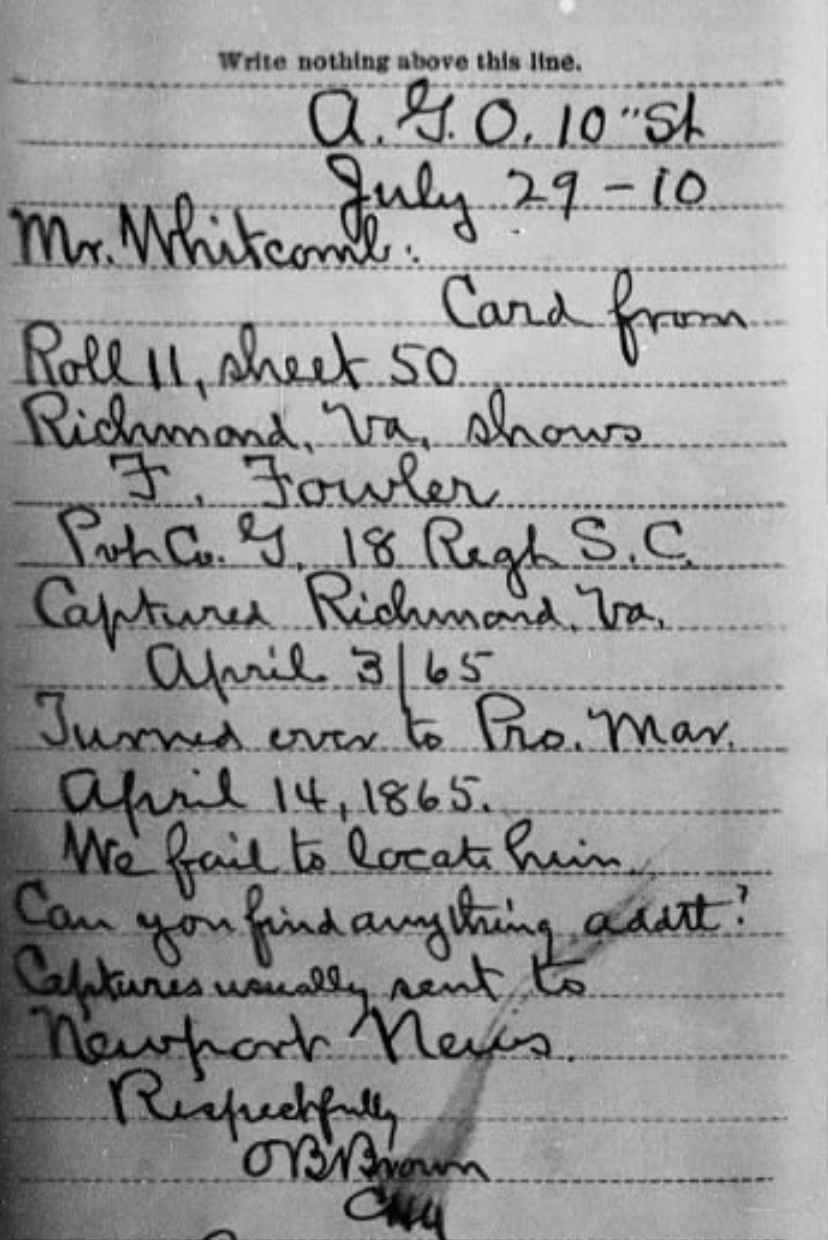 Write nothing above this line.
A. G. O. 10" St
July 29-10
Mr. Whitcomb:
Card from
Roll 11, sheet 50
Richmond, Va, shows
F. Fowler
Pvt Co. G, 18 Regt S.C.
Captured Richmond, Va,
April 3/65
Turned over to Pro. Mar.
April 14, 1865.
We fail to locate him
Can you find anything addtl?
Captures usually sent to
Newport News.
Respectfully
OBBrown